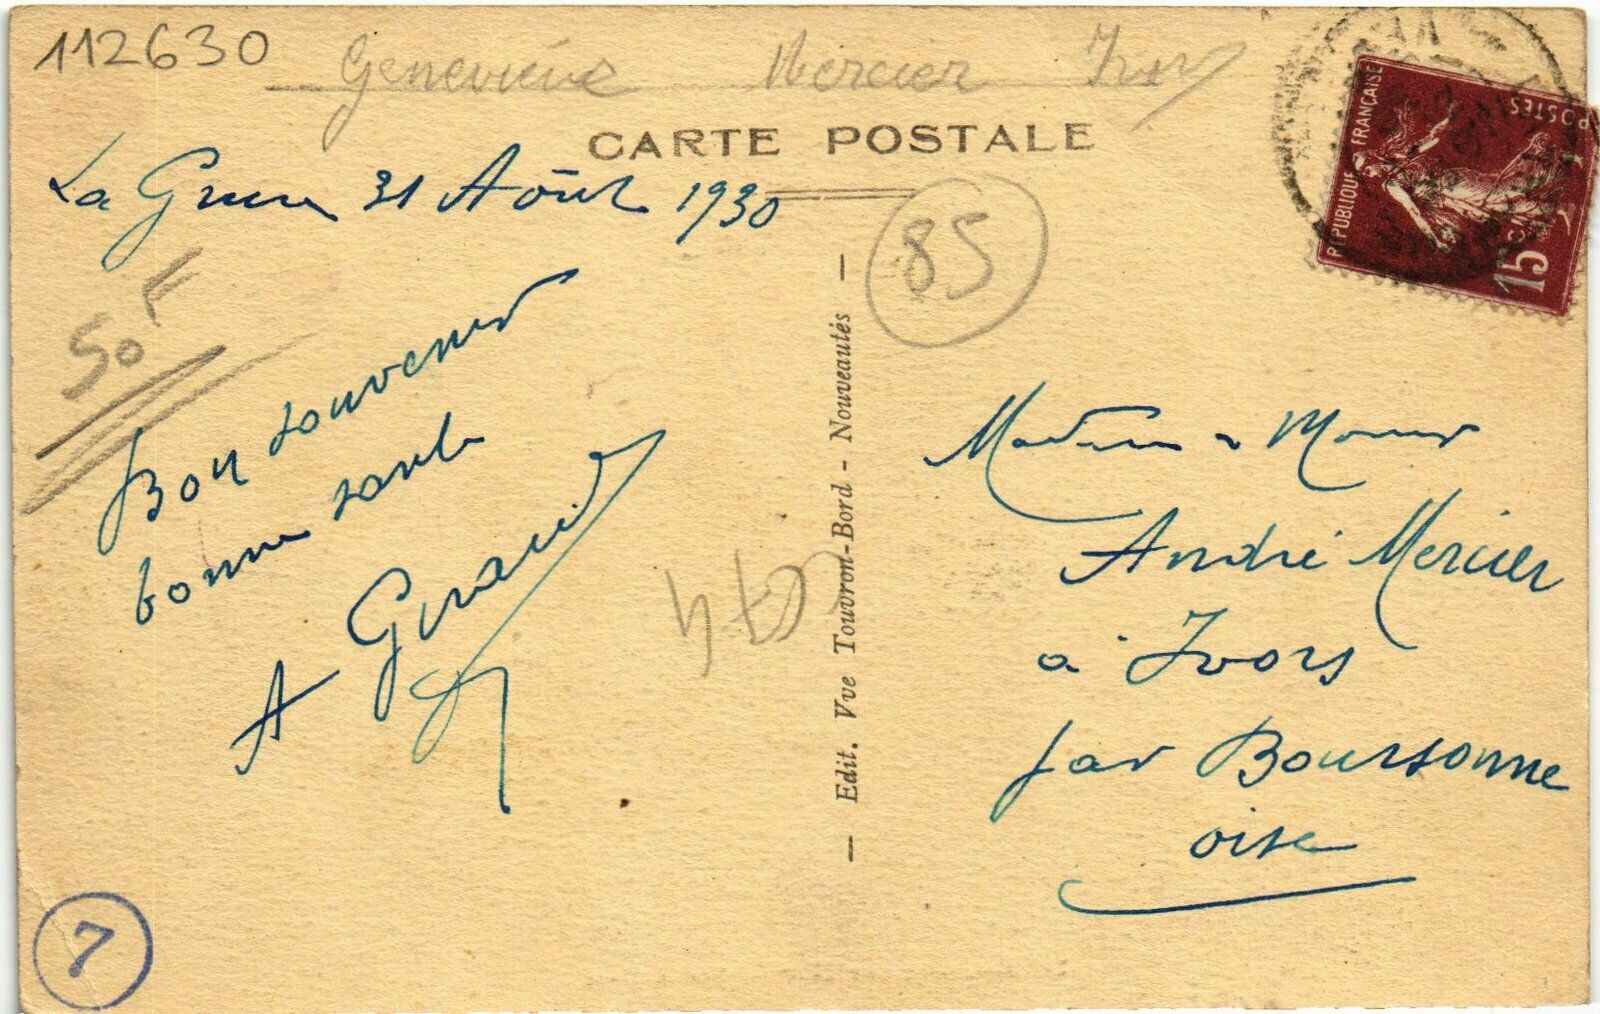 112630
Geneviève Mercier
CARTE POSTALE
La 31 Août 1930
85
50F
Bon souvenir
bonne santé
A Giraud
Edit. Vve Touvron-Bord - Nouveautés
RÉPUBLIQUE FRANÇAISE
POSTES
15c
Madame & Monsr
André Mercier
à Ivors
par Boursonne
oise
7